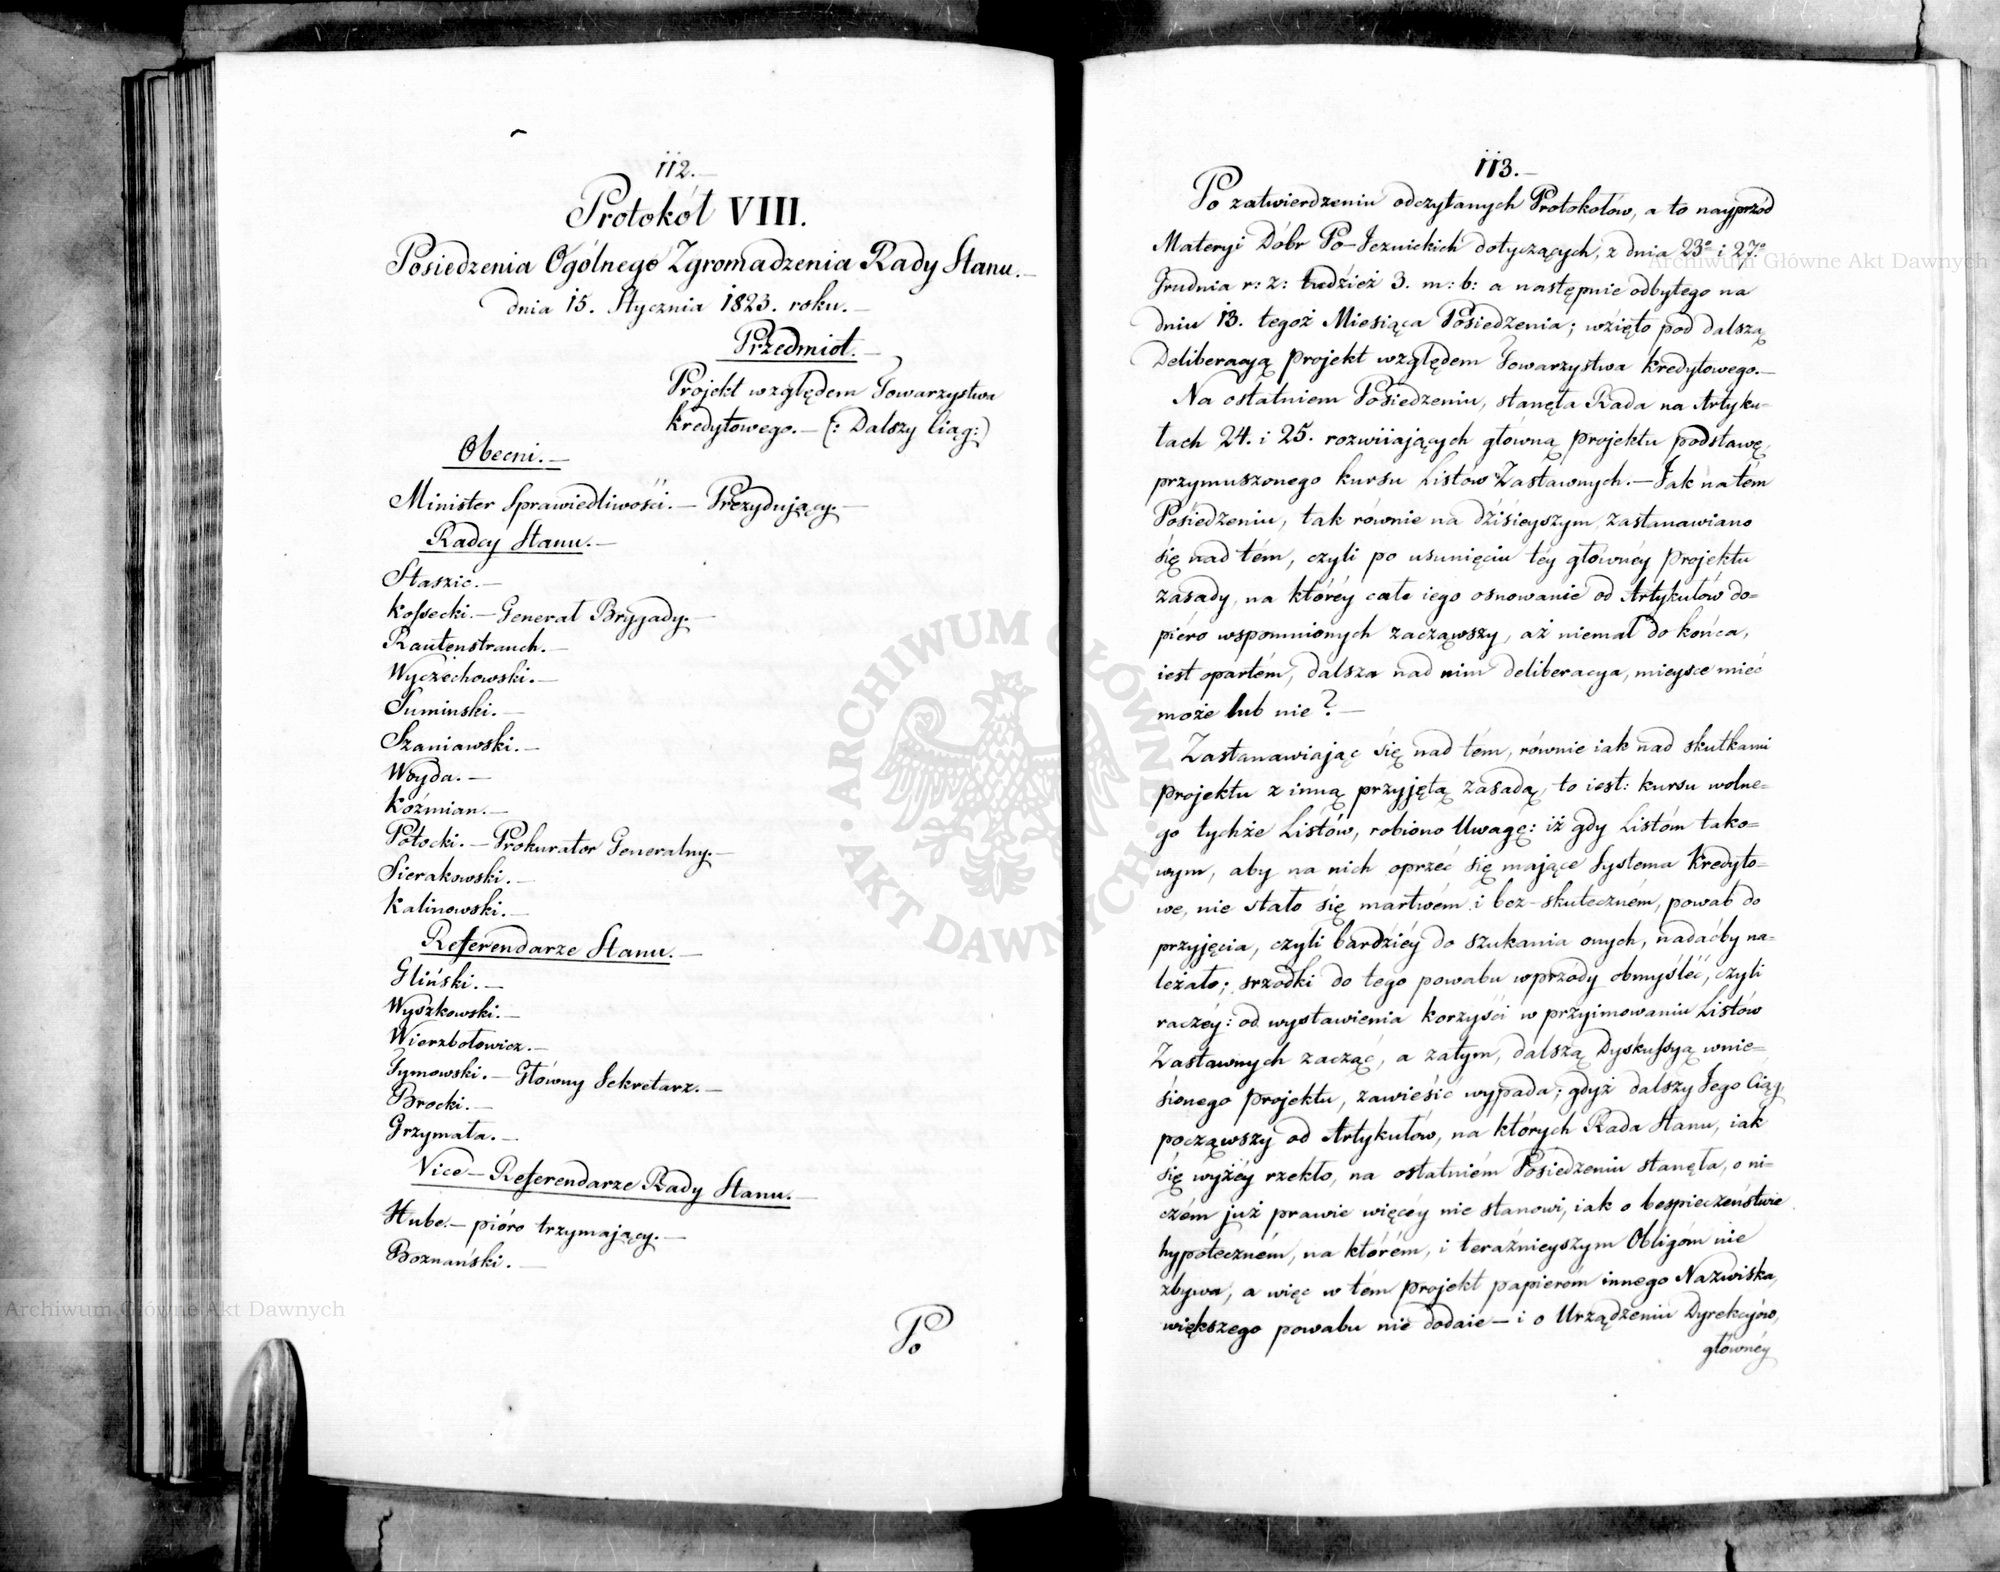 112.
Protokół VIII.
Posiedzenia Ogólnego Zgromadzenia Rady Stanu.
dnia 15. Stycznia 1823. roku.
Przedmiot.
Projekt względem Towarzystwa
kredytowego. (: Dalszy Ciąg:)
Obecni.
Minister Sprawiedliwości. Prezydujący.
Radcy Stanu.
Staszic.
Kossecki. Generał Brygady.
Rautenstrauch.
Wyczechowski.
Suminski.
Szaniawski.
Woyda.
Koźmian.
Potocki. Prokurator Generalny.
Sierakowski.
Kalinowski.
Referendarze Stanu.
Gliński.
Wyszkowski.
Wierzbołowicz.
Tymowski. Główny Sekretarz.
Brocki.
Grzymała.
Vice-Referendarze Rady Stanu.
Hube. pióro trzymający.
Boznański.
Po
113.
Po zatwierdzeniu odczytanych Protokołów, a to nayprzód
Materyi Dóbr Po-Jeznickich dotyczących, z dnia 23º i 27º
Grudnia r: z: tudzież 3. m: b: a następnie odbytego na
dniu 13. tegoż Miesiąca Posiedzenia; wzięto pod dalszą
Deliberacyą projekt względem Towarzystwa kredytowego.
Na ostatniem Posiedzeniu, stanęła Rada na Artyku-
łach 24. i 25. rozwiiaiących główną projektu podstawę,
przymuszonego kursu Listów Zastawnych. Jak na tém
Posiedzeniu, tak równie na dzisieyszym zastanawiano
się nad tém, czyli po usunięciu téy główney projektu
zasady, na któréy całe iego osnowanie od Artykułów do-
piéro wspomnionych zacząwszy, aż niemal do końca,
iest opartém, dalsza nad nim deliberacya, mieysce mieć
może lub nie?
Zastanawiaiąc się nad tém, równie iak nad skutkami
projektu z inną przyjętą zasadą, to iest: kursu wolne-
go tychże Listów, robiono Uwagę: iż gdy Listom tako-
wym, aby na nich oprzeć się mające Systema kredyto-
we, nie stało się martwém i bez-skuteczném, powab do
przyjęcia, czyli bardziéy do szukania onych, nadaćby na-
leżało; srzodki do tego powabu wprzódy obmyśleć, czyli
raczéy: od wystawienia korzyści w przyimowaniu Listów
Zastawnych zacząć, a zatym, dalszą Dyskussyą wnie-
sionego projektu, zawiesić wypada; gdyż dalszy Jego Ciąg,
począwszy od Artykułów, na których Rada Stanu, iak
się wyżéy rzekło, na ostatniém Posiedzeniu stanęła, o ni-
czém już prawie więcéy nie stanowi, iak o bespieczeństwie
hypoteczném, na którém, i teraźnieyszym Obligóm nie
zbywa, a więc w tém projekt papierom innego Nazwiska,
większego powabu nie dodaie – i o Urządzeniu Dyrekcyów,
główney
Archiwum Główne Akt Dawnych
Archiwum Główne Akt Dawnych
ARCHIWUM GŁÓWNE AKT DAWNYCH